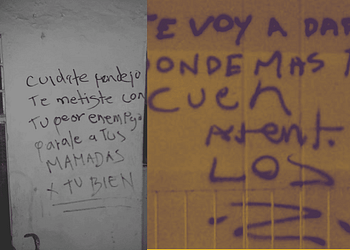 cuidate pendejo
Te metiste con
Tu peor enemigo
parale a Tus
MAMADAS
X TU BIEN
TE VOY A DAR
DONDE MAS
cuen
Atent.
LOS
Z